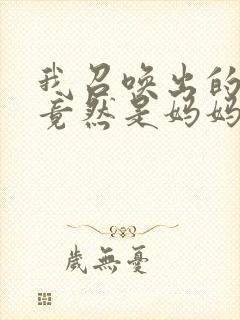 我召唤出的
竟然是妈妈
歲無憂